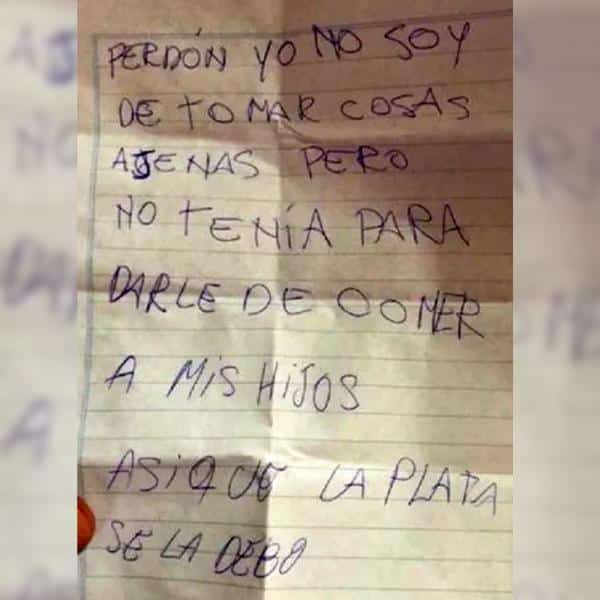 PERDÓN YO NO SOY
DE TOMAR COSAS
AJENAS PERO
NO TENÍA PARA
DARLE DE COMER
A MIS HIJOS
ASIQUE LA PLATA
SE LA DEBO